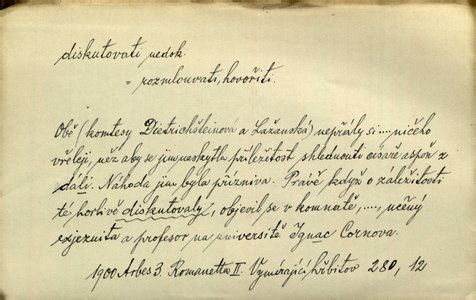 diskutovati nedok.
= rozmlouvati, hovořiti.
Obě (komtesy Dietrichšteinová a Lažanská) nepřály si ...., ničeho
vřeleji, než aby se jim naskytla příležitost shlédnouti císaře aspoň z
dáli. Náhoda jim byla přízniva. Právě když o záležitosti
té horlivě diskutovaly, objevil se v komnatě, ...., učený
exjezuita a profesor na universitě Ignac Cornova.
1900 Arbes 3. Romanetta II. Vymírající hřbitov 280, 12